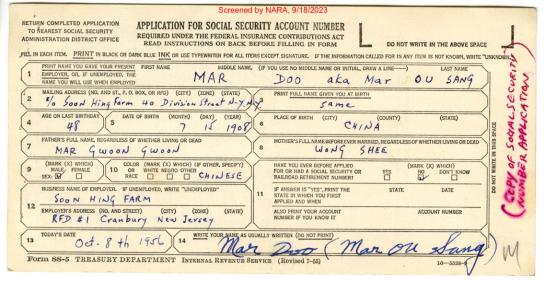 Screened by NARA, 9/18/2023
RETURN COMPLETED APPLICATION
TO NEAREST SOCIAL SECURITY
ADMINISTRATION DISTRICT OFFICE
APPLICATION FOR SOCIAL SECURITY ACCOUNT NUMBER
REQUIRED UNDER THE FEDERAL INSURANCE CONTRIBUTIONS ACT
READ INSTRUCTIONS ON BACK BEFORE FILLING IN FORM
DO NOT WRITE IN THE ABOVE SPACE
FILL IN EACH ITEM. PRINT IN BLACK OR DARK BLUE INK OR USE TYPEWRITER FOR ALL ITEMS EXCEPT SIGNATURE. IF THE INFORMATION CALLED FOR IN ANY ITEM IS NOT KNOWN, WRITE "UNKNOWN"
1 PRINT NAME YOU GAVE YOUR PRESENT EMPLOYER, OR, IF UNEMPLOYED, THE NAME YOU WILL USE WHEN EMPLOYED
FIRST NAME MIDDLE NAME, (IF YOU USE NO MIDDLE NAME OR INITIAL, DRAW A LINE—) LAST NAME
MAR DOO aka Mar OU SANG
2 MAILING ADDRESS (NO. AND ST., P. O. BOX, OR RFD) (CITY) (ZONE) (STATE)
c/o Soon Hing Farm 40 Division Street N.Y. N.Y.
3 PRINT FULL NAME GIVEN YOU AT BIRTH
same
4 AGE ON LAST BIRTHDAY
48
5 DATE OF BIRTH (MONTH) (DAY) (YEAR)
7 15 1908
6 PLACE OF BIRTH (CITY) (COUNTY) (STATE)
CHINA
7 FATHER'S FULL NAME, REGARDLESS OF WHETHER LIVING OR DEAD
MAR GWOON GWOON
8 MOTHER'S FULL NAME BEFORE EVER MARRIED, REGARDLESS OF WHETHER LIVING OR DEAD
WONG SHEE
9 SEX: (MARK (X) WHICH) MALE FEMALE
X
10 COLOR OR RACE (MARK (X) WHICH) (IF OTHER, SPECIFY) WHITE NEGRO OTHER
CHINESE
11 HAVE YOU EVER BEFORE APPLIED FOR OR HAD A SOCIAL SECURITY OR RAILROAD RETIREMENT NUMBER? (MARK (X) WHICH) YES NO DON'T KNOW
IF ANSWER IS "YES", PRINT THE STATE IN WHICH YOU FIRST APPLIED AND WHEN STATE DATE
ALSO PRINT YOUR ACCOUNT NUMBER IF YOU KNOW IT ACCOUNT NUMBER
12 BUSINESS NAME OF EMPLOYER. IF UNEMPLOYED, WRITE "UNEMPLOYED"
SOON HING FARM
EMPLOYER'S ADDRESS (NO. AND STREET) (CITY) (ZONE) (STATE)
RFD #1 Cranbury New Jersey
13 TODAY'S DATE
Oct. 8th 1956
14 WRITE YOUR NAME AS USUALLY WRITTEN (DO NOT PRINT)
Mar Doo (Mar Ou Sang)
Form SS-5 TREASURY DEPARTMENT INTERNAL REVENUE SERVICE (Revised 7-55)
DO NOT WRITE IN THIS SPACE
(COPY OF SOCIAL SECURITY
NUMBER APPLICATION)